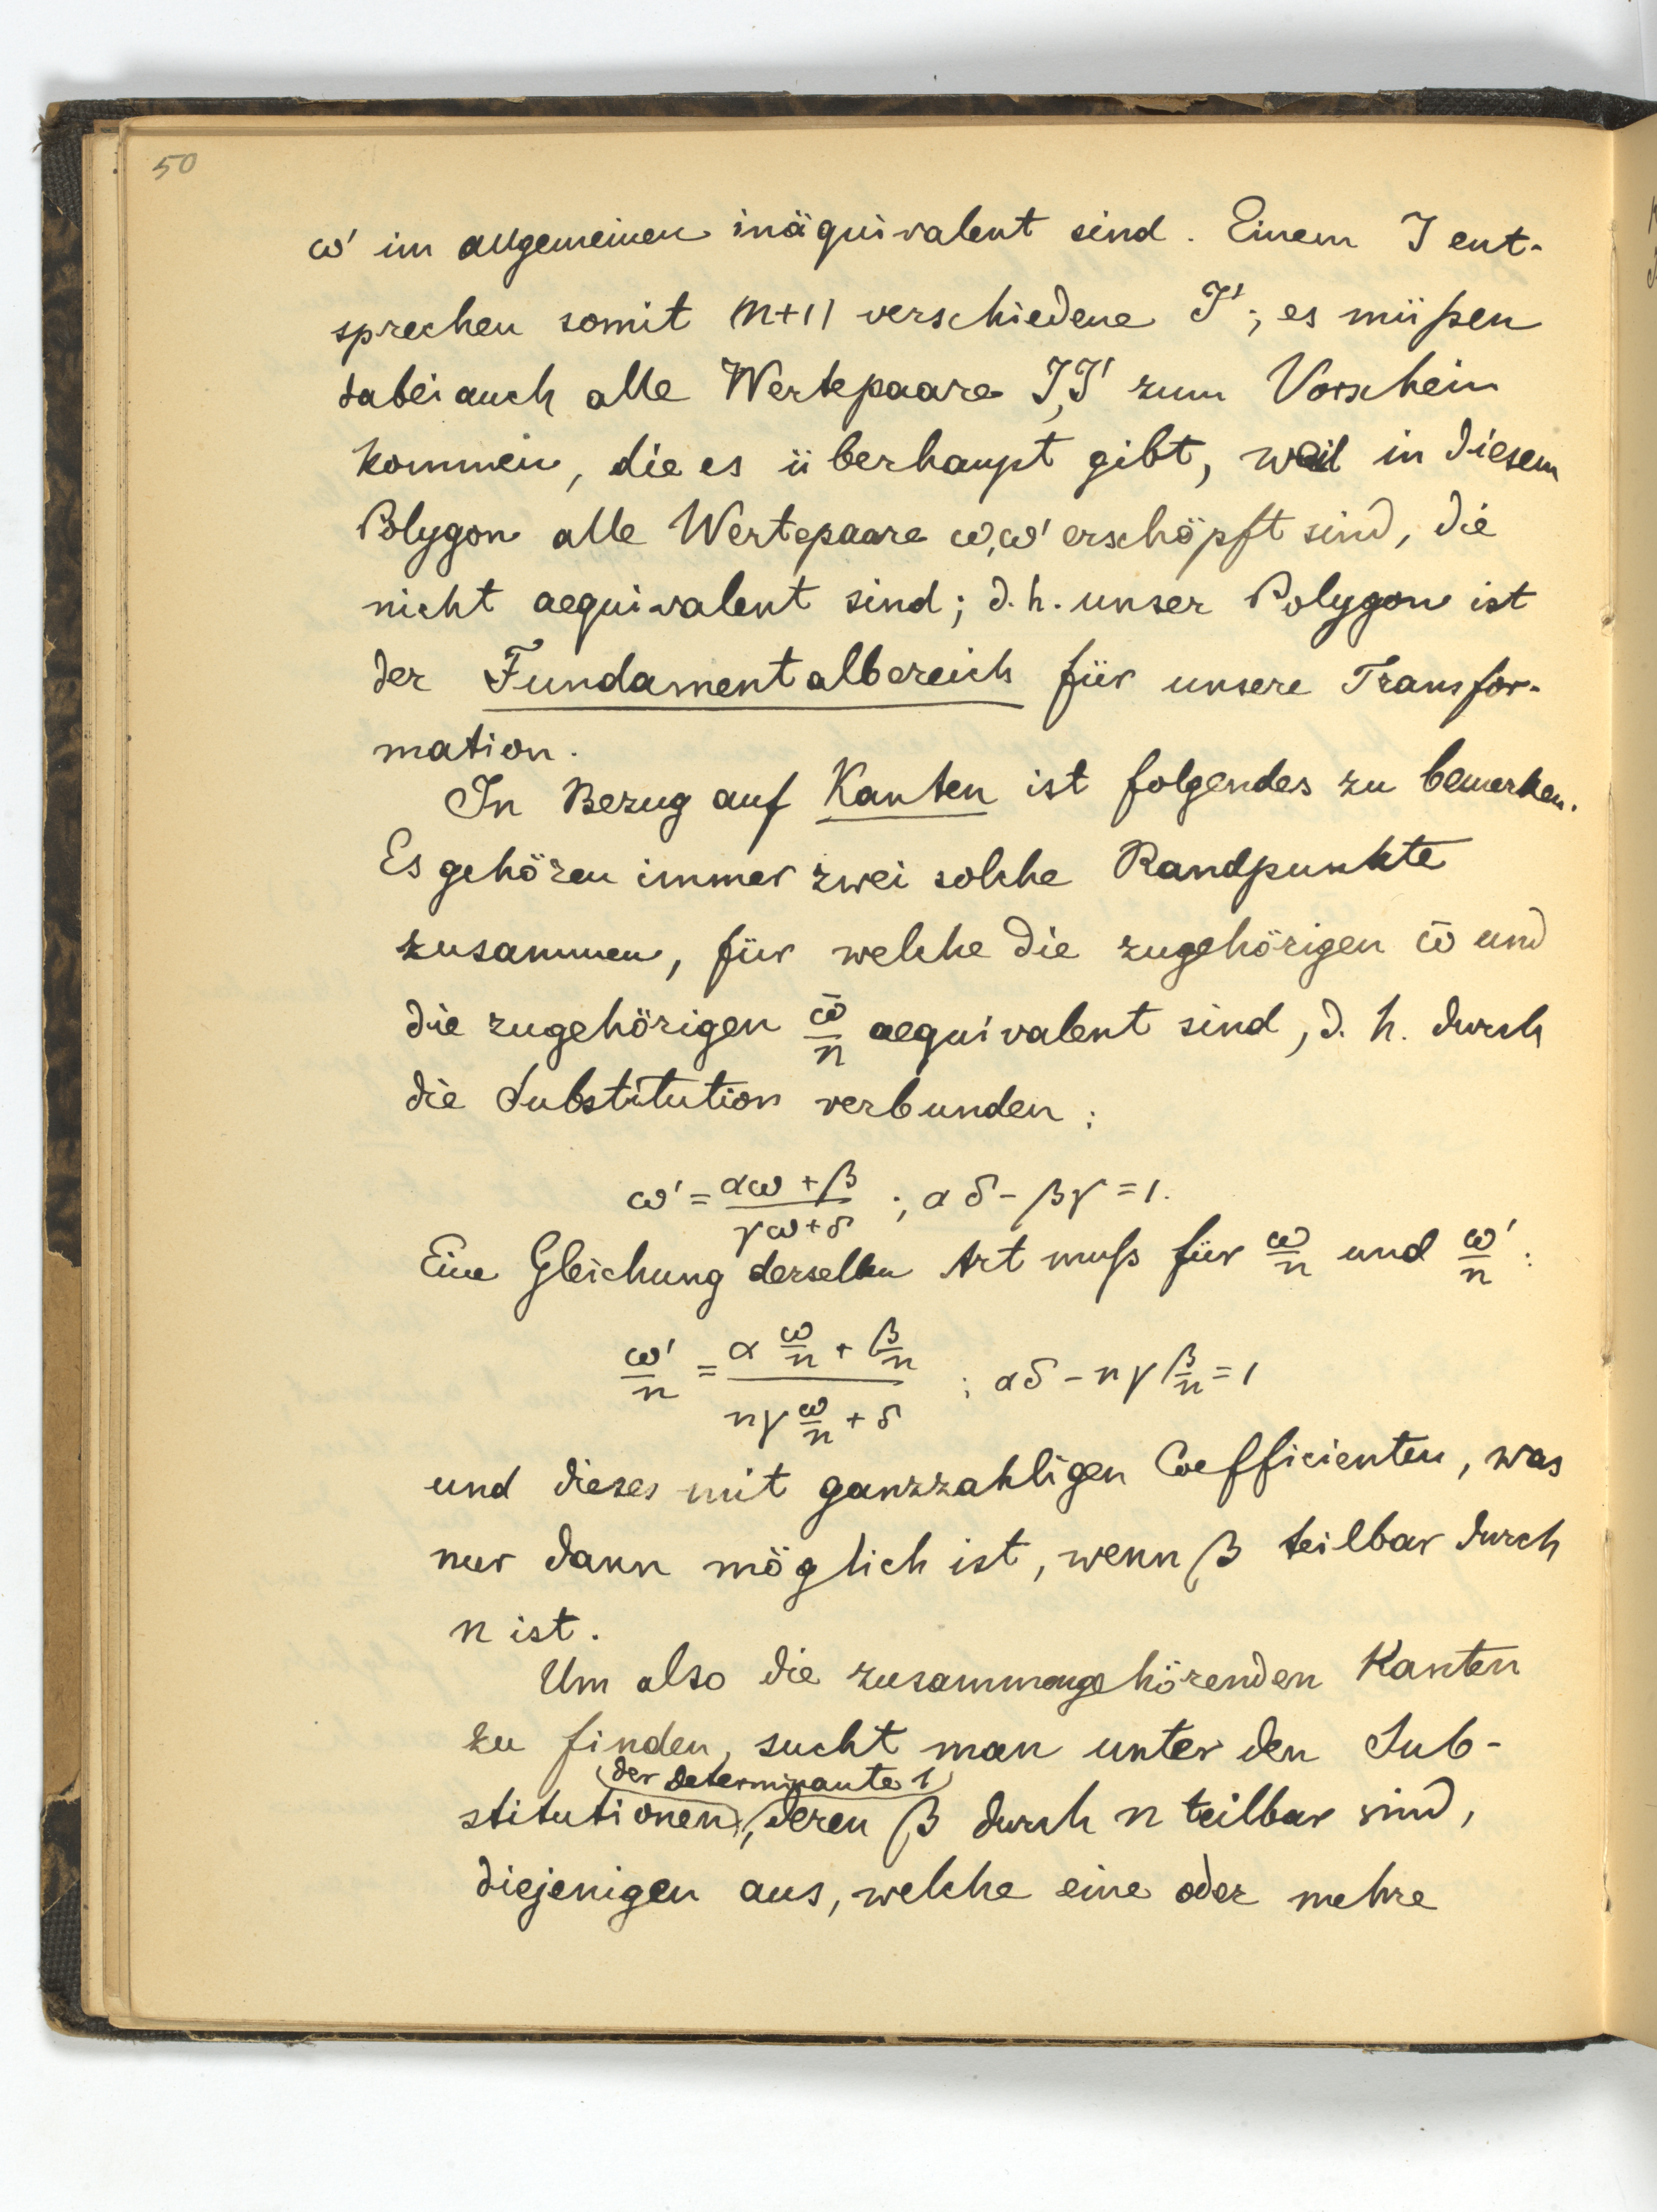 50
ω' im allgemeinen inäquivalent sind. Einem J ent-
sprechen somit (n+1) verschiedene J'; es müßen
dabei auch alle Wertepaare J,J' zum Vorschein
kommen, die es überhaupt gibt, weil in diesem
Polygon alle Wertepaare ω,ω' erschöpft sind, die
nicht aequivalent sind; d.h. unser Polygon ist
der Fundamentalbereich für unsere Transfor-
mation.
In Bezug auf Kanten ist folgendes zu bemerken.
Es gehören immer zwei solche Randpunkte
zusammen, für welche die zugehörigen ω̄ und
die zugehörigen ω̄/n aequivalent sind, d. h. durch
die Substitution verbunden:
ω' = (αω + β)/(γω + δ) ; αδ - βγ = 1.
Eine Gleichung derselben Art muß für ω/n und ω'/n :
ω'/n = (α ω/n + β/n)/(nγ ω/n + δ) ; αδ - nγ β/n = 1
und dieses mit ganzzahligen Coefficienten, was
nur dann möglich ist, wenn β teilbar durch
n ist.
Um also die zusammengehörenden Kanten
zu finden, sucht man unter den Sub-
(der Determinante 1)
stitutionen, deren β durch n teilbar sind,
diejenigen aus, welche eine oder mehre